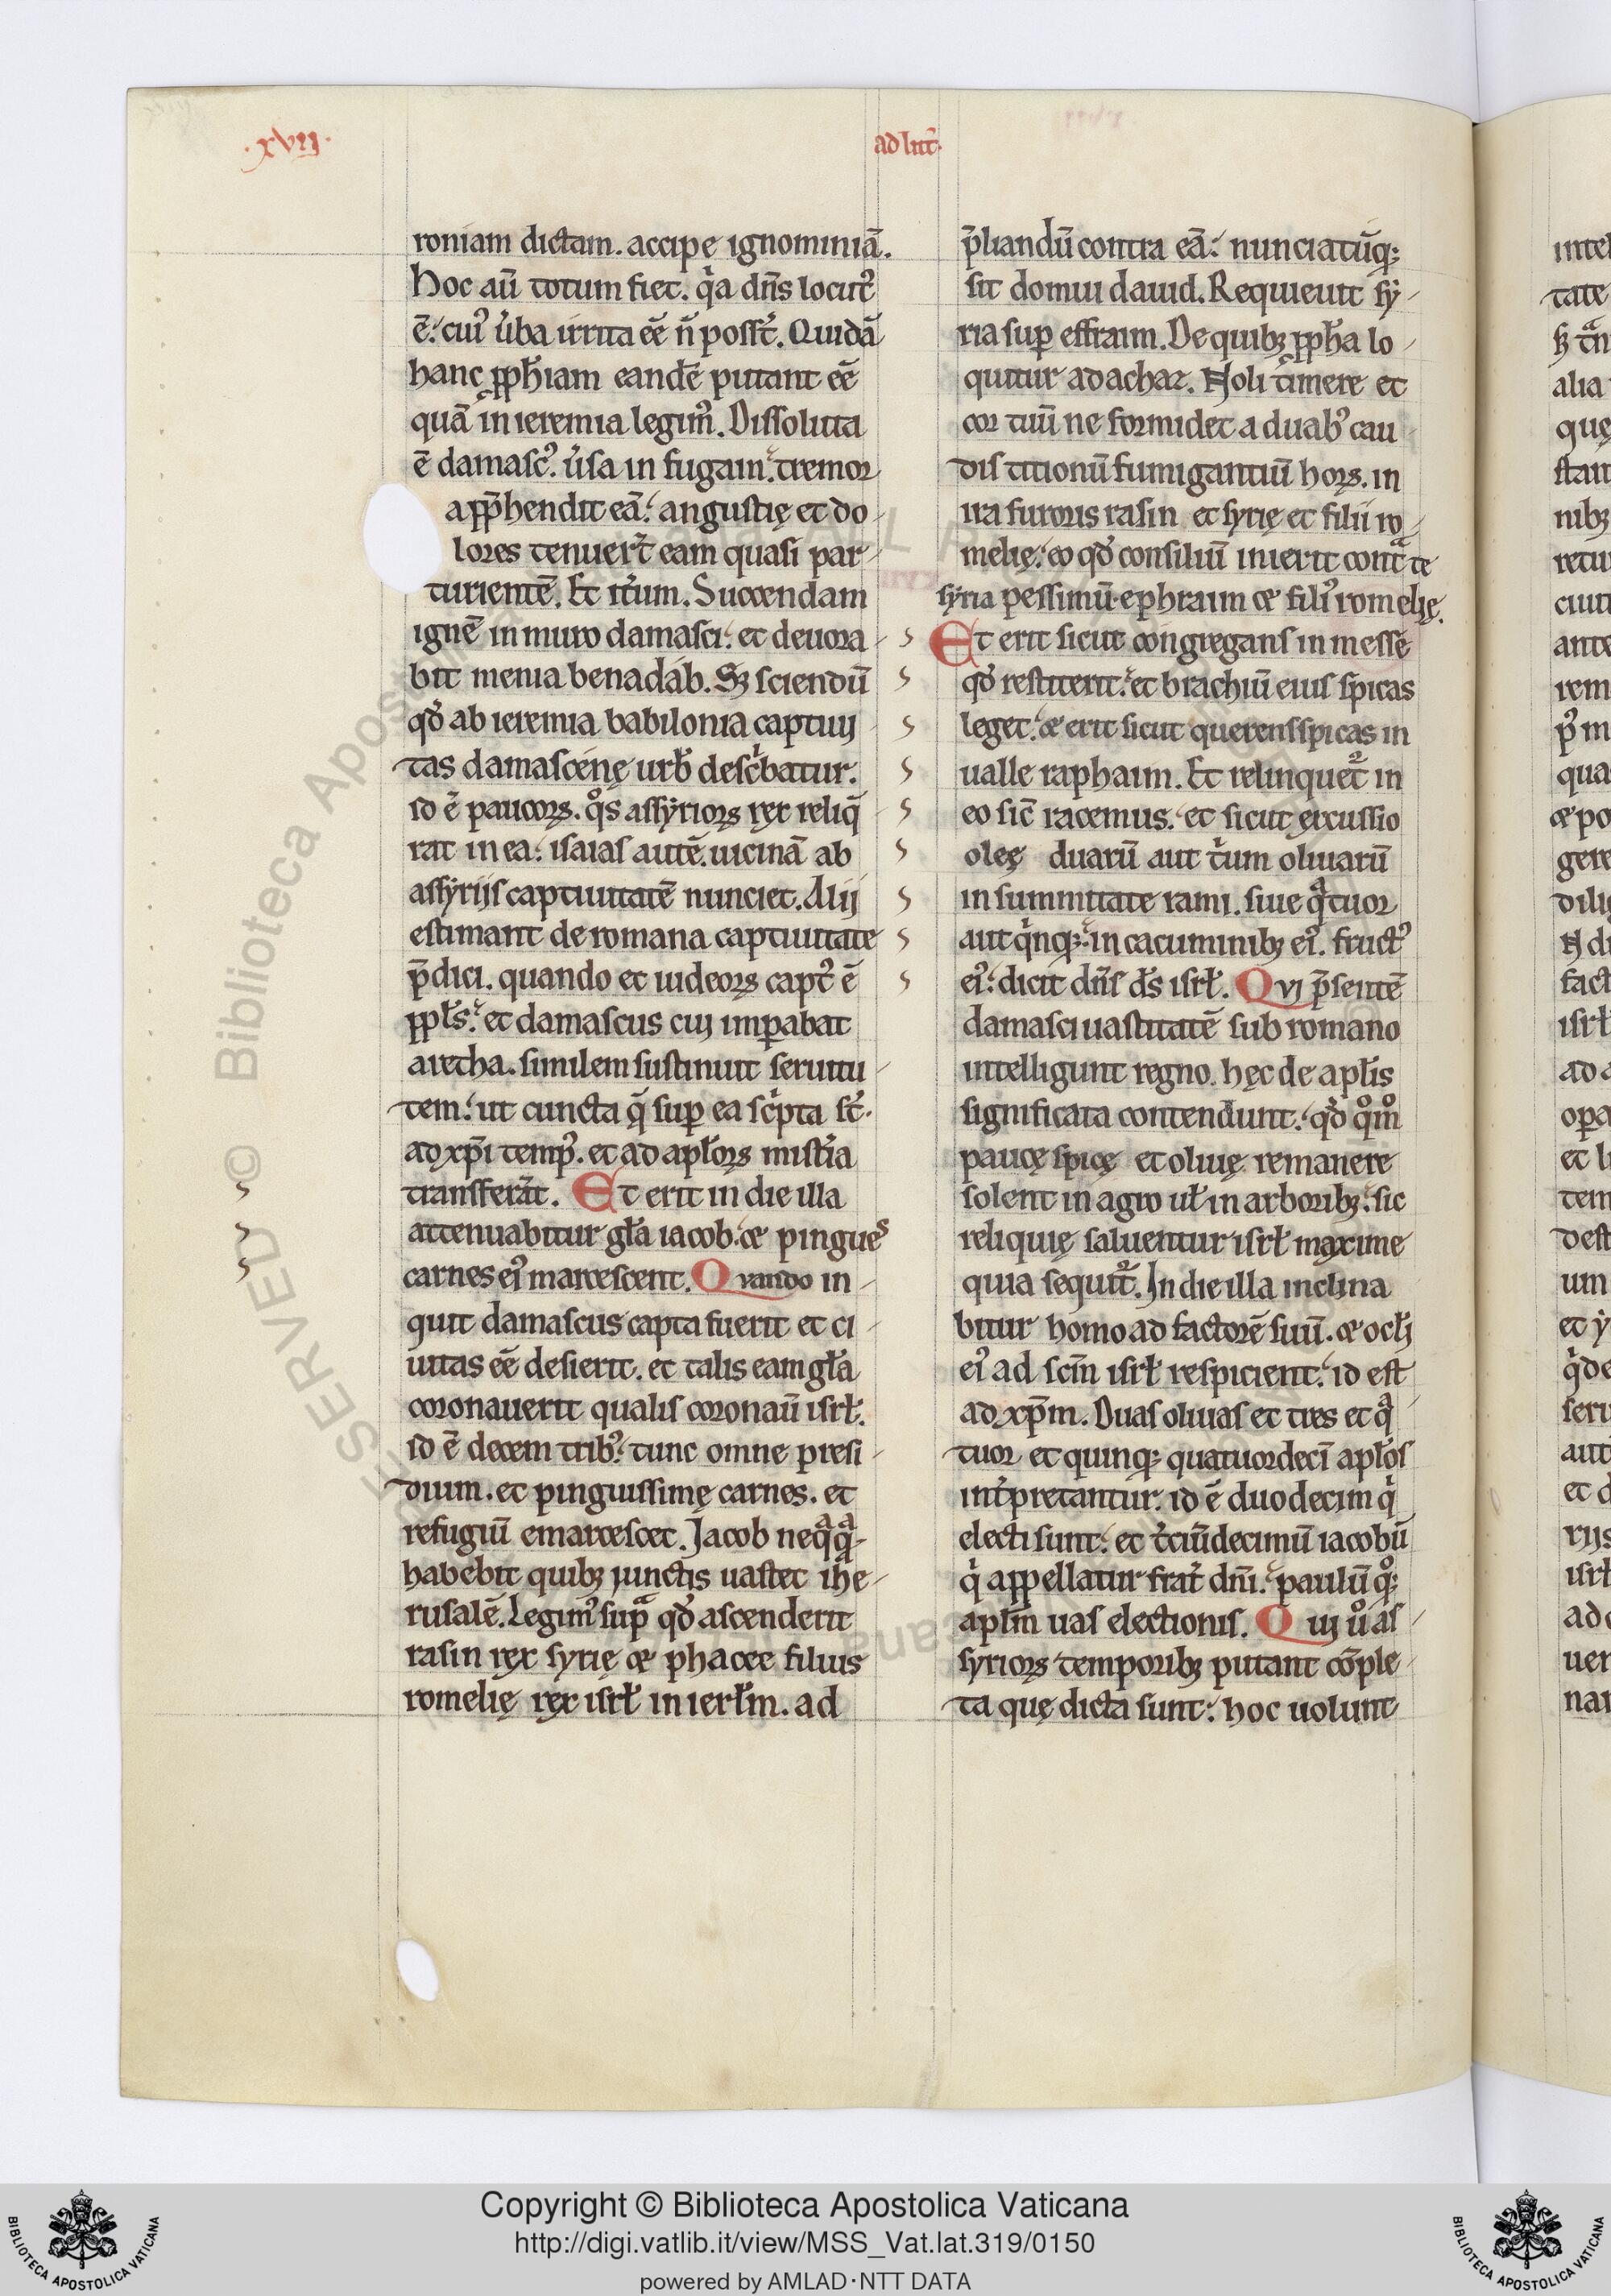 ·xvij·
ad litt̄·
roniam dictam. accipe ignominiā.
Hoc aū totum fiet. q̇a dn̄s locut᷒
ē: cui᷒ u̇ba irrita eē n̄ poss̄t. Quidā
hanc ꝓph̄iam eandē putant eē
quā in ieremia legim᷒. Dissoluta
ē damasc᷒. u̇sa in fugam: tremor
app̄hendit eā: angustię et do-
lores tenuer̄t eam quasi par-
turientē. Et it̄um. Succendam
ignē in muro damasci: et deuora-
bit menia benadáb. Sꝫ sciendū
qd̄ ab ieremia babilonia captiui-
tas damascenę urb̄ desċbatur.
id ē paucoꝝ. q̊s assẏrioꝝ rex reliq̄
rat in ea: isaias autē. uicinā ab
assẏrijs captiuitatē nunciet. Alij
estimant de romana captiuitate
p̄dici. quando et iudeoꝝ capt᷒ ē
ppl̄s: et damascus cui imꝑabat
aretha. similem sustinuit seruitu-
tem: ut cuncta q̄ suꝑ ea sċpta st̄.
ad xp̄i temp᷒. et ad apl̄oꝝ mist̄ia
transferāt. Et erit in die illa
attenuabitur gl̄a iacob: & pingues
carnes ei᷒ marcescent. Quando in-
quit damascus capta fuerit et ci-
uitas eē desierit. et talis eam gl̄a
coronauerit qualis coronaū isrl̄.
id ē decem trib᷒: tunc omne presi-
dium. et pinguissimę carnes. et
refugiū emarcescet. Jacob neqᷓqᷓ-
habebit quibꝫ iunctis uastet ihe-
rusalē. Legim᷒ supᷓ qd̄ ascenderit
rasin rex syrię & phacee filius
romelię rex isrl̄ in ierl̄m. ad
p̄liandū contra eā: nunciatūqꝫ
sit domui dauid. Requieuit sẏ-
ria suꝑ effraim. De quibꝫ ꝓph̄a lo-
quitur ad achaz. Noli timere et
cor tuū ne formidet a duab᷒ cau-
dis titionū fumigantiū hoꝝ. in
ira furoris rasin et syrię et filii ro-
melię: eo qd̄ consiliū inierit contᷓ te
sẏria pessimū ephraim & fili᷒ romelię.
Et erit sicut congregans in messe
qd̄ restiterit: et brachiū eius spicas
leget: & erit sicut querens spicas in
ualle raphaim. Et relinquet᷑ in
eo sic̄ racemus: et sicut excussio
oleę duarū aut t̄um oliuarū
in summitate rami. siue qᷓtuor
aut q̇nqꝫ: in cacuminibꝫ ei᷒. fruct᷒
ei᷒: dicit dn̄s ds̄ isrl̄. Qui p̄sentē
damasci uastitatē sub romano
intelligunt regno. hęc de apl̄is
significata contendunt: qd̄ q̊m̊
paucę spicę et oliuę remanere
solent in agro ul̄ in arboribꝫ: sic
reliquię saluentur isrl̄ maxime
quia sequit᷑. In die illa inclina
bitur homo ad factorē suū. & ocl̄i
ei᷒ ad scm̄ isrl̄ respicient: id est
ad xp̄m. Duas oliuas et tres et qᷓ
tuor et quinqꝫ quatuordecī apl̄os
int̄pretantur. id ē duodecim q̇
electi sunt: et t̄ciūdecimū iacobū
q̇ appellatur frat̄ dn̄i: paulū q̊qꝫ
aplm̄ uas electionis. Qui ů as-
syrioꝝ temporibꝫ putant cōple-
ta quę dicta sunt: hoc uolunt
Copyright © Biblioteca Apostolica Vaticana
http://digi.vatlib.it/view/MSS_Vat.lat.319/0150
powered by AMLAD·NTT DATA